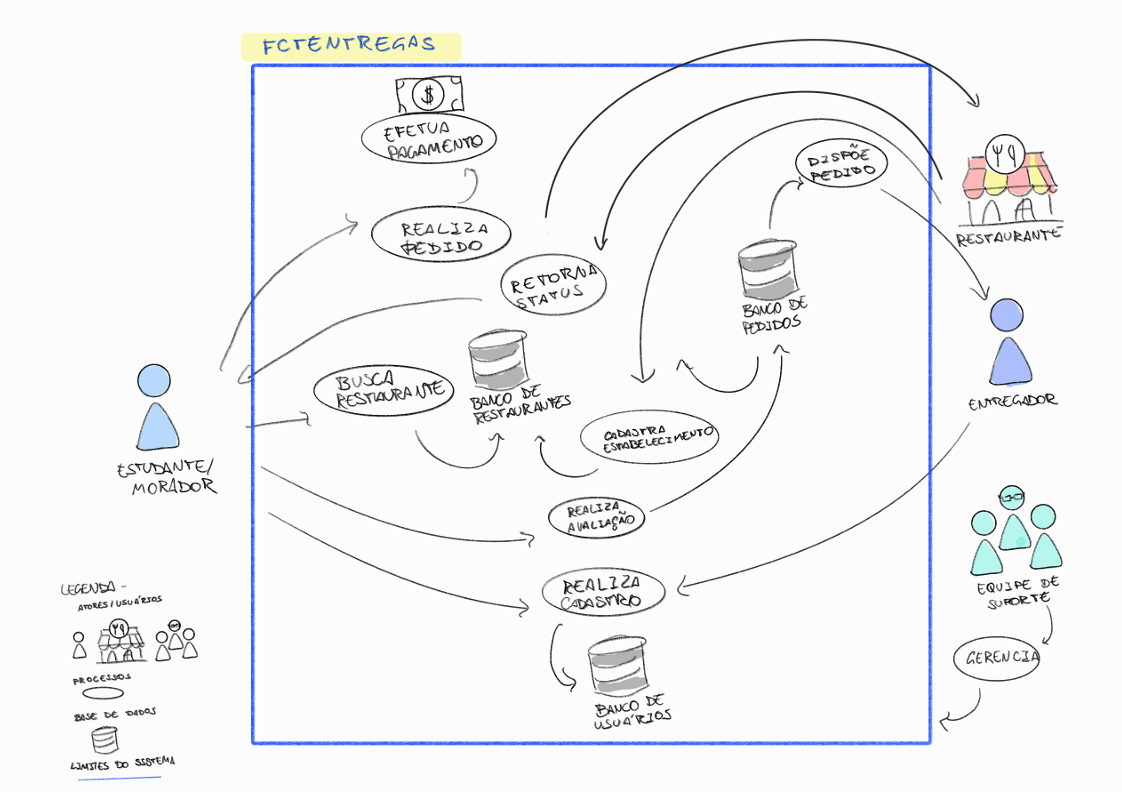 FCTENTREGAS
$
EFETUA
PAGAMENTO
REALIZA
PEDIDO
RETORNA
STATUS
DISPÕE
PEDIDO
RESTAURANTE
BANCO DE
PEDIDOS
ENTREGADOR
BUSCA
RESTAURANTE
BANCO DE
RESTAURANTES
CADASTRA
ESTABELECIMENTO
ESTUDANTE/
MORADOR
REALIZA
AVALIAÇÃO
REALIZA
CADASTRO
BANCO DE
USUÁRIOS
EQUIPE DE
SUPORTE
GERENCIA
LEGENDA -
ATORES/USUÁRIOS
PROCESSOS
BASE DE DADOS
LIMITES DO SISTEMA